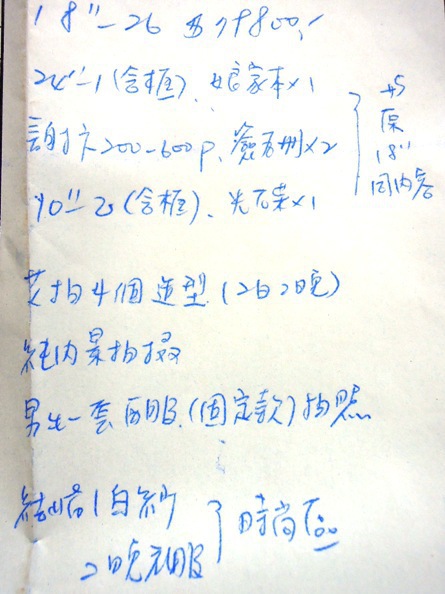 18"-26
24"-1(含框)、娘家本x1
謝卡200-600P、x2
(含框)、x1
原
18"
同內容
共拍4個造型(2白2晚)
純內景拍攝
男生一套西服(固定款)拍照
結婚1白紗
2晚禮服
時尚區